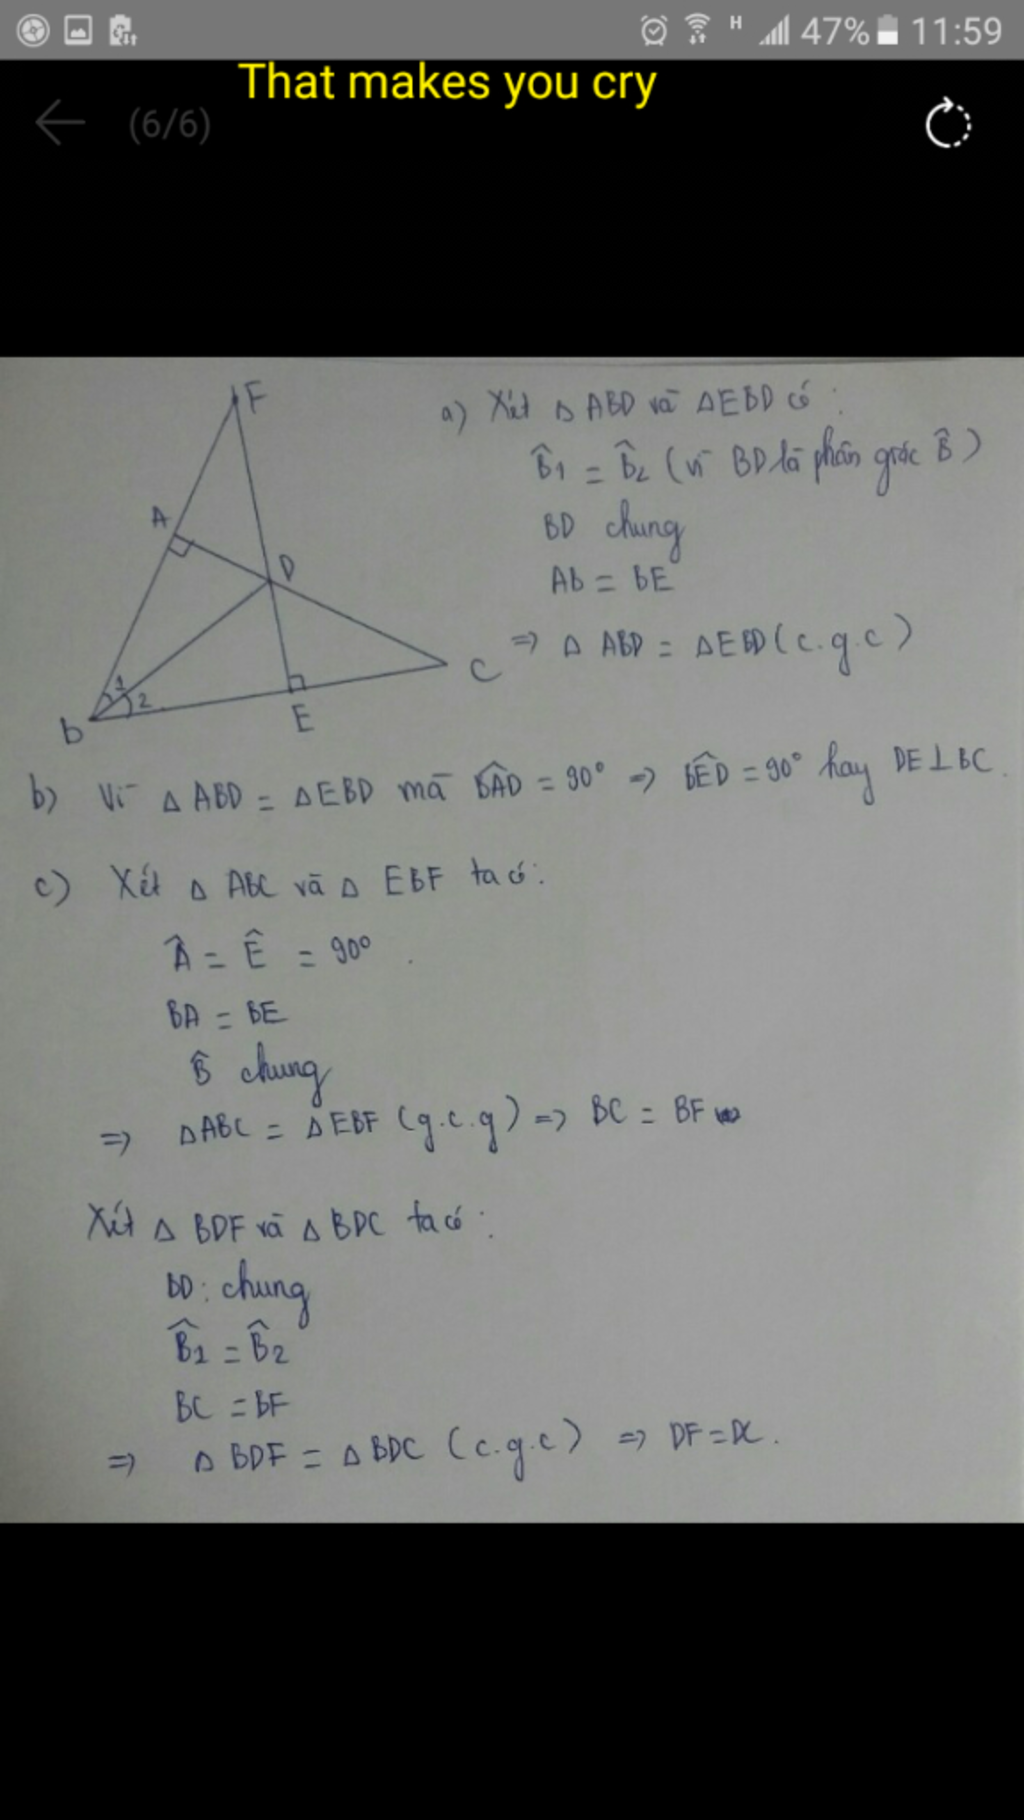 47% 11:59
That makes you cry
(6/6)
F
A
D
C
B
E
1
2
a) Xét Δ ABD và ΔEBD có :
B̂1 = B̂2 (vì BD là phân giác B̂)
BD chung
AB = BE
=> Δ ABD = ΔEBD (c.g.c)
b) Vì Δ ABD = ΔEBD mà BÂD = 90° => BÊD = 90° hay DE⊥BC.
c) Xét Δ ABC và Δ EBF ta có:
Â = Ê = 90°
BA = BE
B̂ chung
=> ΔABC = ΔEBF (g.c.g) => BC = BF
Xét Δ BDF và Δ BDC ta có :
BD : chung
B̂1 = B̂2
BC = BF
=> Δ BDF = Δ BDC (c.g.c) => DF = DC.